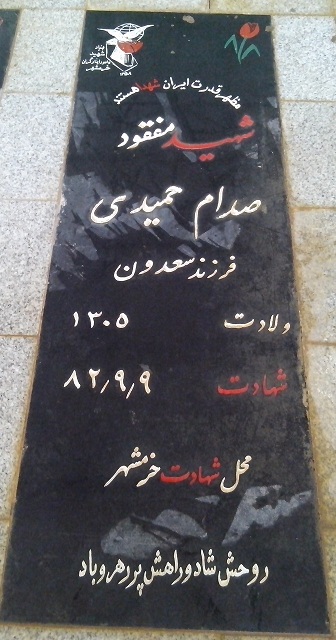 بنیاد
شهید
و امور ایثارگران
خرمشهر
۱۳۵۸
مظهر قدرت ایران شهدا هستند
شهید مفقود
صدام حمیدی
فرزند سعدون
ولادت ۱۳۰۵
شهادت ۸۲/۹/۹
محل شهادت خرمشهر
روحش شاد و راهش پر رهرو باد